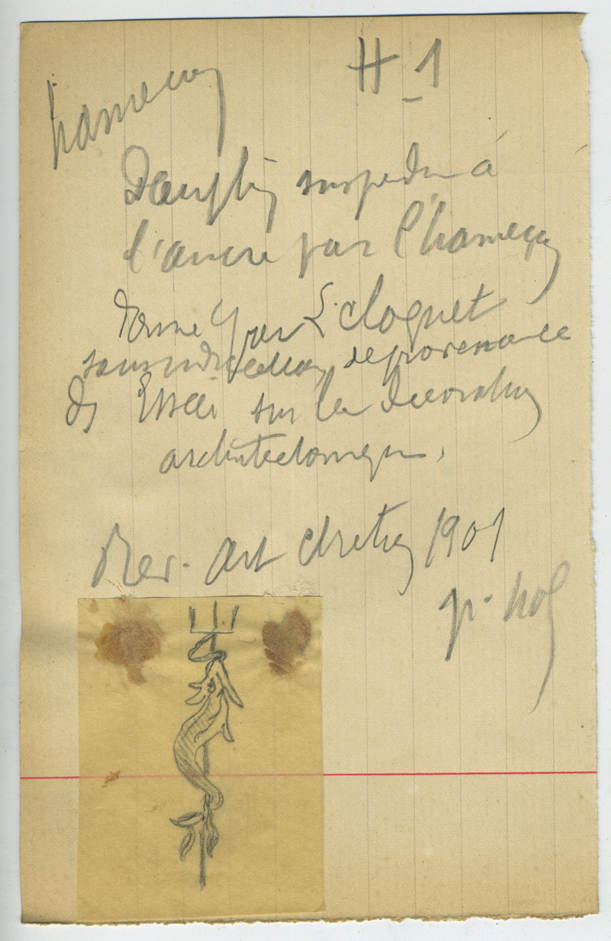 hameçon
H-1
Dauphin suspendu à
l'ancre par l'hameçon
donné par L. Cloquet
sans indication de provenance
ds Essai sur la décoration
architectonique,
Rev. Art chrétien 1901
p.